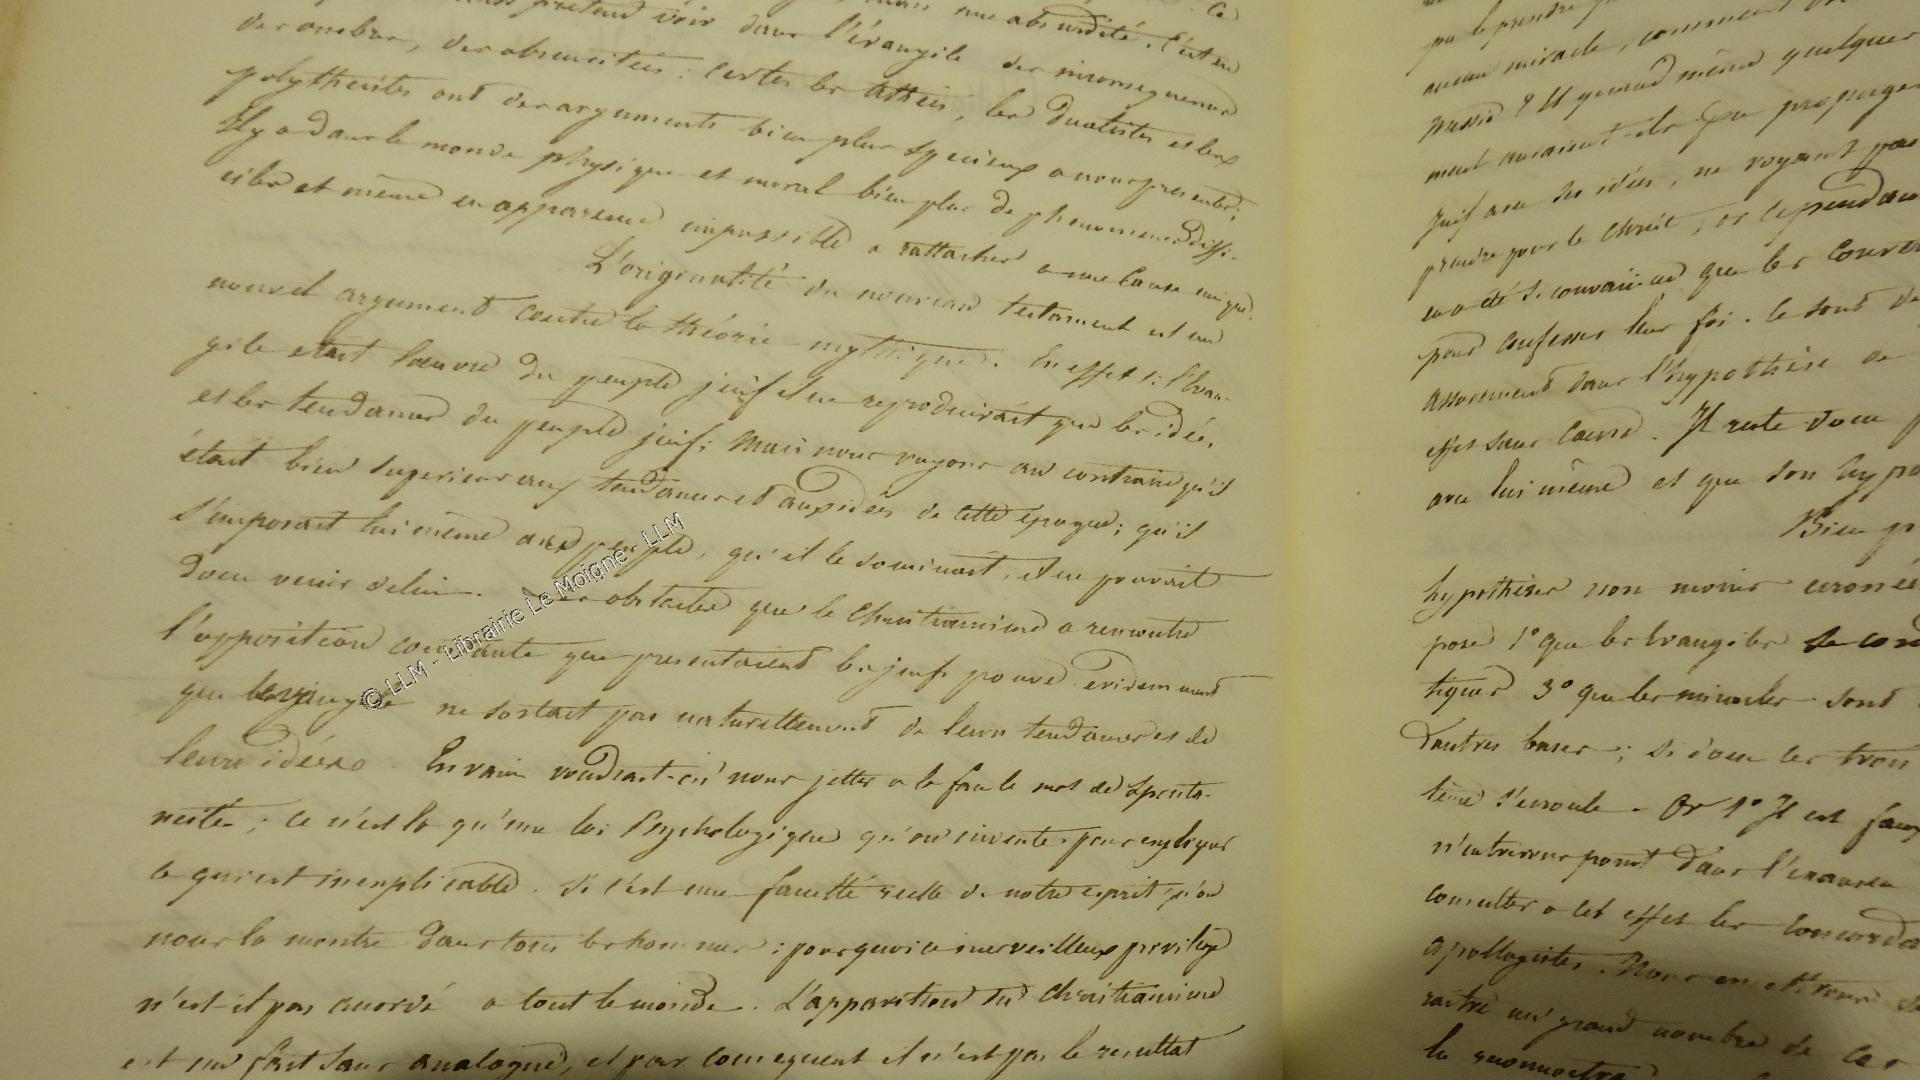 prétend voir dans l'évangile des inconséquences
des ombres, des obscurités : certes les athées, les dualistes et les
polythéistes ont des arguments bien plus spécieux a nous presenter;
Il y a dans le monde physique et moral bien plus de phenomenes diffi-
ciles et même en apparence impossible a rattacher a une cause unique.
L'originalité du nouveau testament est un
nouvel argument contre la théorie mythique. En effet si l'évan-
gile etait l'œuvre du peuple juif il ne reproduirait que les idées
et les tendances du peuple juif; mais nous voyons au contraire qu'il
était bien superieur aux tendances et aux idées de cette époque; qu'il
s'imposait lui même au peuple, qu'il le dominait, il ne pouvait
donc venir de lui. Les obstacles que le Christianisme a rencontré
l'opposition constante que presentaient les juifs prouve evidemment
que l'evangile ne sortait pas naturellement de leurs tendances et de
leurs idées. En vain voudrait-on nous jetter a la face le mot de sponta-
neité; ce n'est la qu'une loi Psychologique qu'on invente pour expliquer
ce qui est inexplicable. Si c'est une faculté reelle de notre esprit qu'on
nous la montre dans tous les hommes; pourquoi ce merveilleux privilège
n'est-il pas accordé a tout le monde. L'apparition du Christianisme
est un fait sans analogue, et par consequent il n'est pas le resultat
aucun miracle, comment
? Et quand même quelques
ment auraient-ils pu propager
juif avec ses idées, ne voyant pas
prendre pour le Christ; or cependant
convaincu que les
pour confesser leur foi. Ce sont
dans l'hypothèse de
effet sans cause. Il reste donc
avec lui même et que son hypo
Bien
hypothèses non moins erronée
pose 1° que les Evangiles se con
tiques 3° que les miracles sont
d'autres bases; si donc ces trois
tème s'écroule. Or 1° Il est faux
n'entrerons point dans l'examen
consulter a cet effet les concorda
apollogistes. Nous en
un grand nombre de ces
la reconnaitre
© LLM - Librairie Le Moigne - LLM